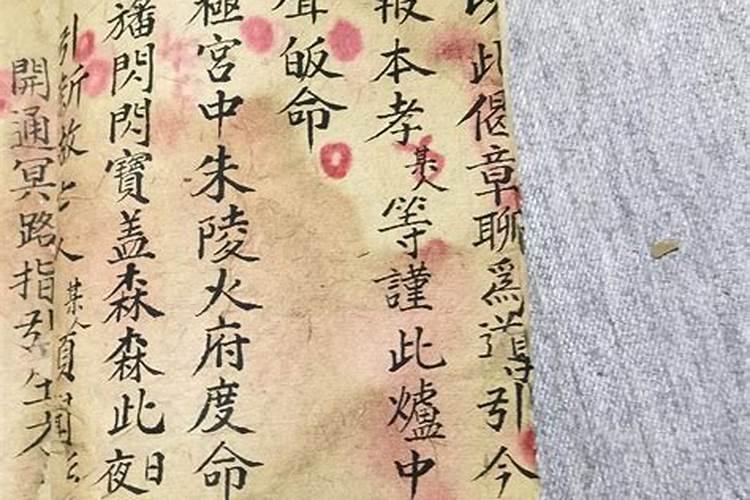 此偈章聊爲道引今
報本孝某人等謹此爐中
皈命
極宮中朱陵火府度命
旛閃閃寶盖森森此夜日
引新故亡人某人
開通冥路指引